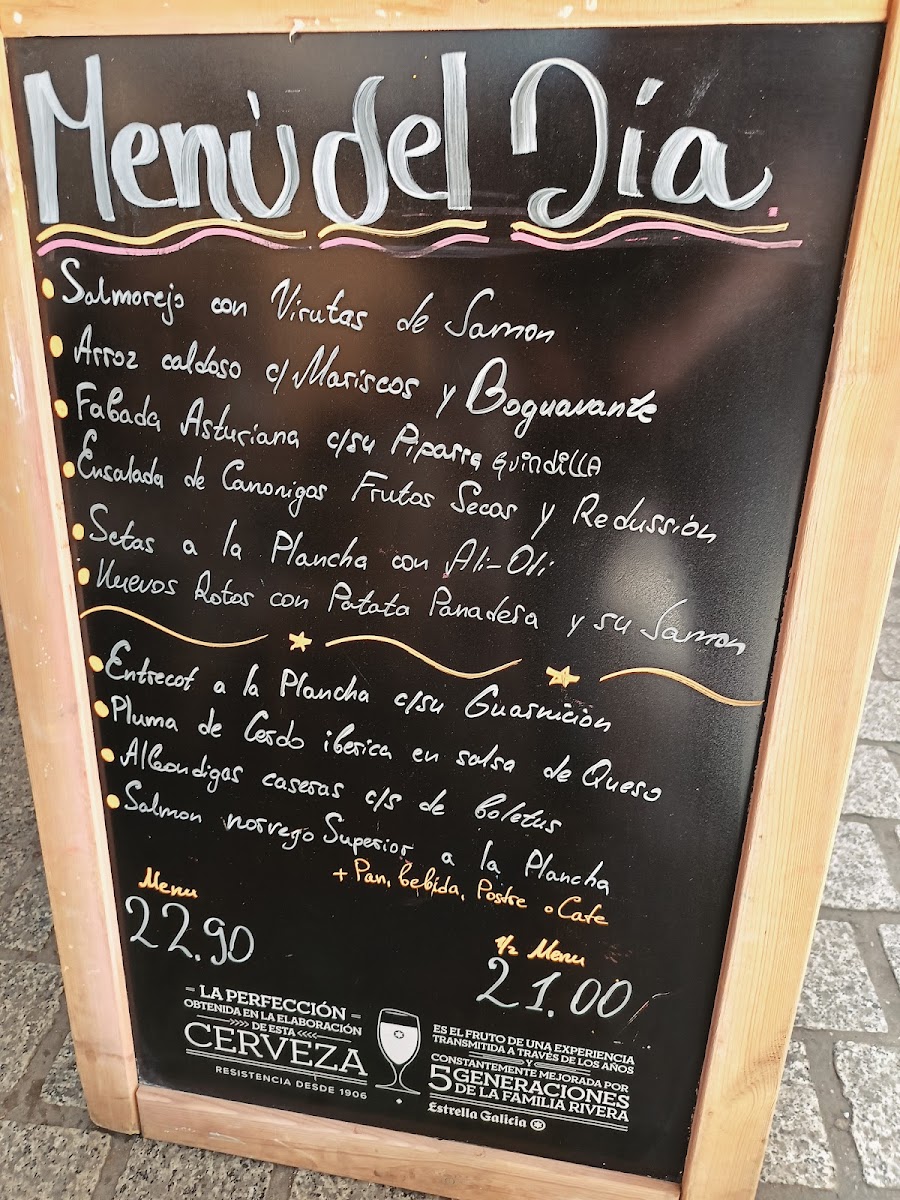 Menú del Día.
Salmorejo con Virutas de Samon
Arroz caldoso c/ Mariscos y Boguavante
Fabada Asturiana c/su Piparra GUindiLLA
Ensalada de Canonigos Frutos Secos y Redussión
Setas a la Plancha con Ali-Oli
Huevos Rotos con Patata Panadera y su Samon
Entrecot a la Plancha c/su Guarnicion
Pluma de Cerdo iberica en salsa de Queso
Albondigas caseras c/s de boletus
Salmon norvego Superior a la Plancha
+ Pan, bebida, Postre o Cafe
Menu
22.90
1/2 Menu
21.00
- LA PERFECCIÓN -
OBTENIDA EN LA ELABORACIÓN
>>>> DE ESTA <<<<
CERVEZA
RESISTENCIA DESDE 1906
ES EL FRUTO DE UNA EXPERIENCIA
TRANSMITIDA A TRAVÉS DE LOS AÑOS
Y
CONSTANTEMENTE MEJORADA POR
5 GENERACIONES
DE LA FAMILIA RIVERA
Estrella Galicia